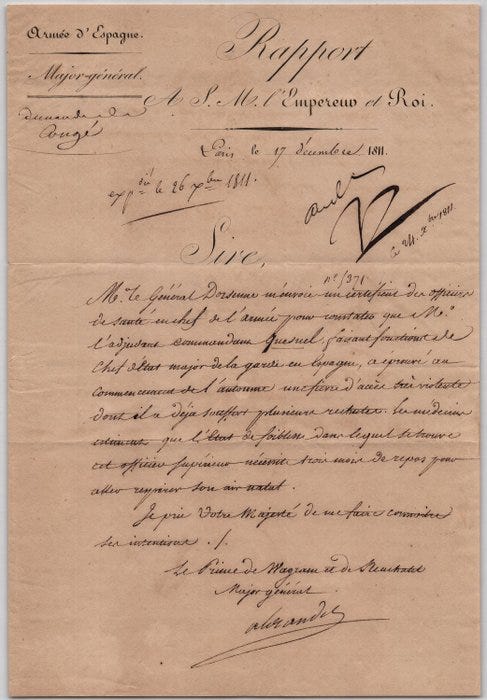 Armée d'Espagne.
Major-général.
demande de
Congé
Rapport
A S. M. l'Empereur et Roi.
Paris le 17 décembre 1811.
expédié le 26 xbre 1811.
ce 21 xbre 1811.
Sire,
n° 371
Mr. le Général Dorsenne m'envoie un certificat des officiers
de santé en chef de l'armée pour constater que Mr.
l'adjudant commandant Quesnel, faisant fonctions de
Chef d'Etat major de la garde en Espagne, a éprouvé au
commencement de l'automne une fièvre d'accès très violente
dont il a déjà souffert plusieurs rechutes. Les médecins
estiment que l'Etat de foiblesse dans lequel se trouve
cet officier supérieur nécessite trois mois de repos pour
aller respirer son air natal.
Je prie Votre Majesté de me faire connoitre
ses intentions ./.
Le Prince de Wagram et de Neuchatel
Major général.
alexandre